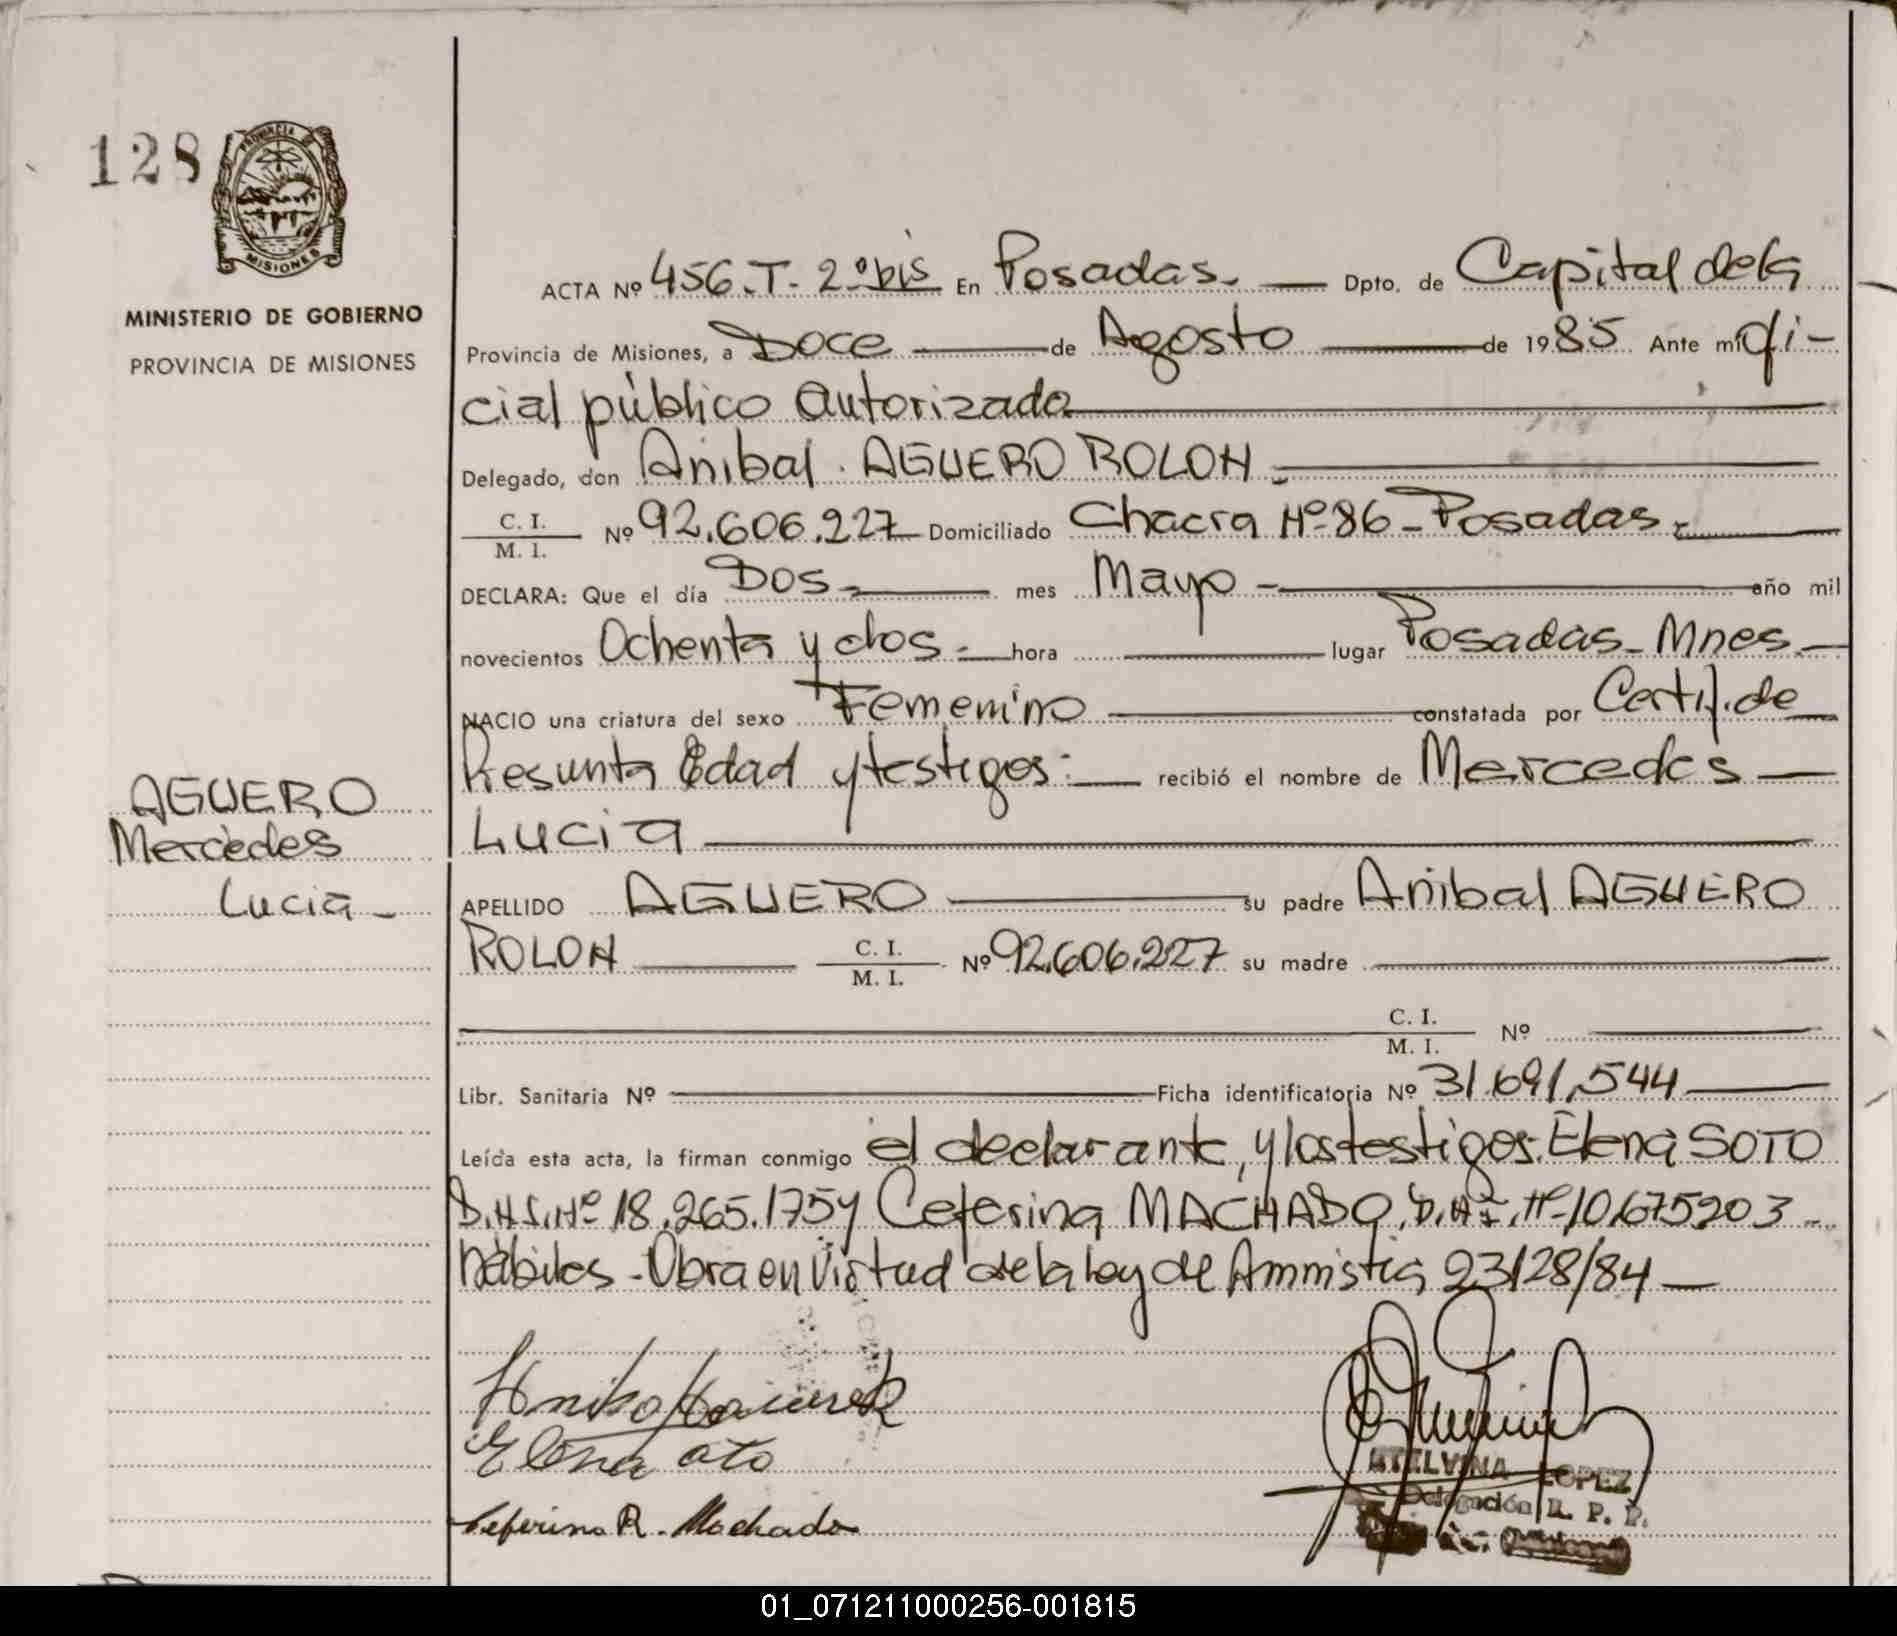 128
PROVINCIA DE
MISIONES
MINISTERIO DE GOBIERNO
PROVINCIA DE MISIONES
ACTA Nº 456.T. 2º bis En Posadas. Dpto. de Capital de la
Provincia de Misiones, a Doce de Agosto de 1985 Ante mí Ofi-
cial público autorizado
Delegado, don Anibal. AGUERO ROLON
C. I.
M. I. Nº 92.606.227 Domiciliado Chacra Nº 86 - Posadas.
DECLARA: Que el día Dos mes Mayo - año mil
novecientos Ochenta y dos. hora lugar Posadas - Mnes.
NACIO una criatura del sexo Femenino constatada por Certif. de
Presunta Edad y testigos: recibió el nombre de Mercedes
Lucia
AGUERO
Mercedes
Lucia -
APELLIDO AGUERO su padre Anibal AGUERO
ROLON C. I.
M. I. Nº 92.606.227 su madre
C. I.
M. I. Nº
Libr. Sanitaria Nº Ficha identificatoria Nº 31.691.544
Leída esta acta, la firman conmigo el declarante, y los testigos: Elena SOTO
D.N.I. Nº 18.265.175 y Ceferina MACHADO, D.N.I. Nº 10.675203
hábiles - Obra en Virtud de la ley de Amnistia 23128/84
Elena oto
Ceferino R. Machado
ETELVINA LOPEZ
Delegación R. P. P.
01_071211000256-001815